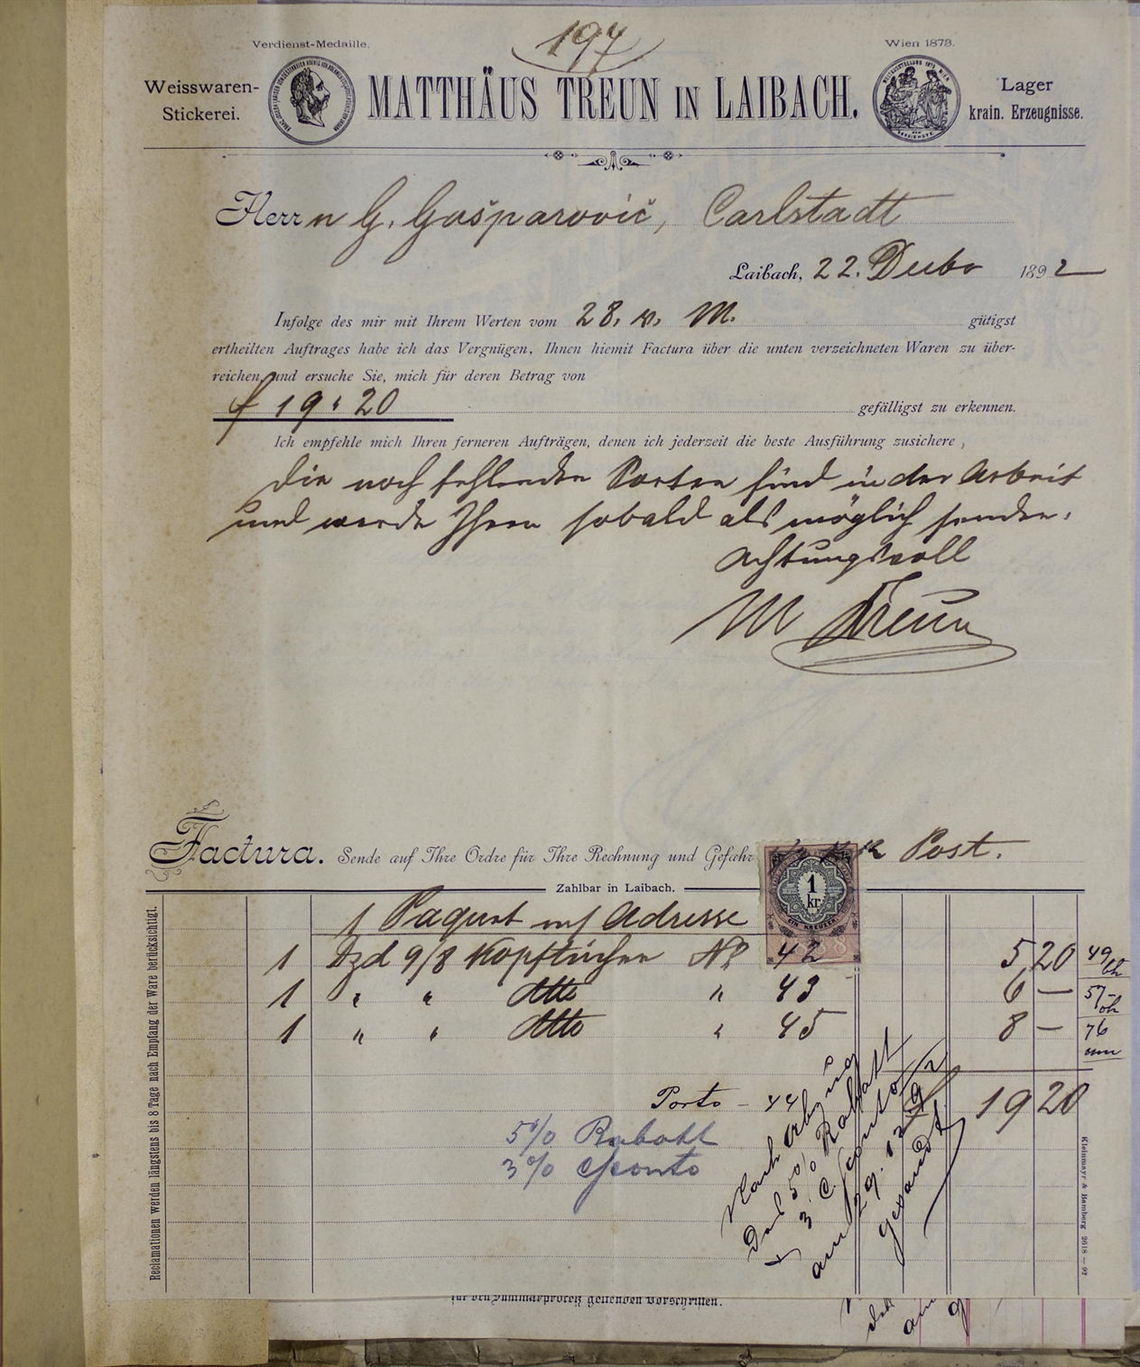 197
Verdienst-Medaille.
Wien 1873.
Weisswaren-
Stickerei.
MATTHÄUS TREUN IN LAIBACH.
Lager
krain. Erzeugnisse.
Herrn G. Gašparović, Carlstadt
Laibach, 22. Decbr 1892
Infolge des mir mit Ihrem Werten vom 28. v. M. gütigst
ertheilten Auftrages habe ich das Vergnügen, Ihnen hiemit Factura über die unten verzeichneten Waren zu über-
reichen, und ersuche Sie, mich für deren Betrag von
f 19 . 20 gefälligst zu erkennen.
Ich empfehle mich Ihren ferneren Aufträgen, denen ich jederzeit die beste Ausführung zusichere,
die noch fehlenden Sorten sind in der Arbeit
und werde Ihnen sobald als möglich senden.
Achtungsvoll
M Treun
Factura. Sende auf Ihre Ordre für Ihre Rechnung und Gefahr Post.
1 kr.
EIN KREUZER
Zahlbar in Laibach.
1 Paquet auf Adresse
1 Dzd 9/8 Kopftücher No 42 5 20 49
1 " " dtto " 43 6 — 57
1 " " dtto " 45 8 — 76
Porto - 44
f 19 20
5% Rabatt
3% Sconto
Nach Abzug
5% Rabatt
3 % Sconto
am 29.
gesandt
Reclamationen werden längstens bis 8 Tage nach Empfang der Ware berücksichtigt.
Kleinmayr & Bamberg 2618 — 92
für den Summarproceß geltenden Vorschriften.